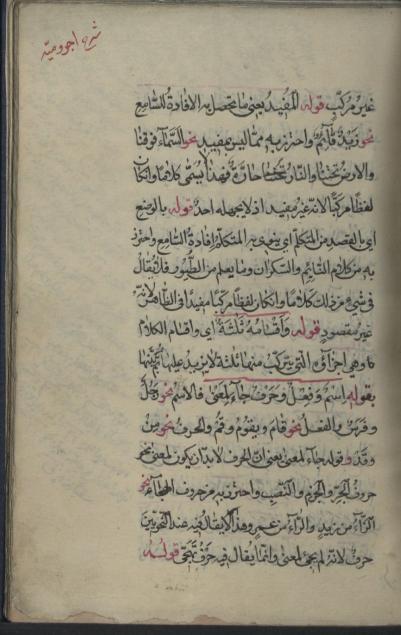 شرح اجروميّة
غير مركّب قوله المفيد يعني ما تحصل به الافادة للسّامع
نحو زيد قآئم واحترز به ممّا ليس بمفيد نحو السّمآء فوقنا
والارض تحتنا والنّار حارّة فهذا لا يسمّى كلاما وانكان
لفظا مركّبا لانّه غير مفيد اذ لا يجهله احد قوله بالوضع
اي بالقصد من المتكلّم اي ينوي به المتكلّم افادة السّامع واحترز
به من كلام النّائم والسّكران وما يعلم من الطّيور فلا يقال
في شيء من ذلك كلاما وانكان لفظا مركّبا مفيدا في الظّاهر لانّه
غير مقصود قوله واقسامه ثلثة اي واقسام الكلام
وهي اجزآؤه الّتي يتركّب منها ثلثة لا يزيد عليها
بقوله اسم وفعل وحرف جآء لمعنى فالاسم نحو رجل
وفرس والفعل نحو قام ويقوم وقم والحرف نحو من
وقد وقوله جآء لمعنى يعني انّ الحرف لا بدّ ان يكون لمعنى نحو
حروف الجرّ والجزم والنّصب واحترز به من حروف الهجآء نحو
الزّآء من زيد والرّآء من عمرو وهذا لا يقال فيه عند النّحويّين
حرف لانّه لم يجئ لمعنى وانّما يقال فيه حرف تهجّي قوله